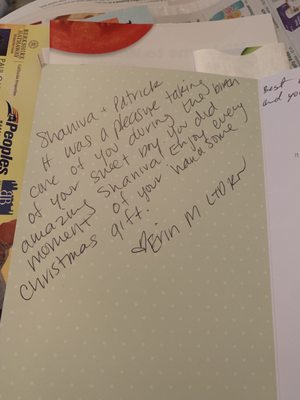 Shaniva + Patrick
It was a pleasure taking
care of you during the birth
of your sweet boy. You did
amazing Shaniva! Enjoy every
moment of your handsome
Christmas gift.
♡Erin M LTD RN
Best
and you
BERKSHIRE
HATHAWAY
Peoples